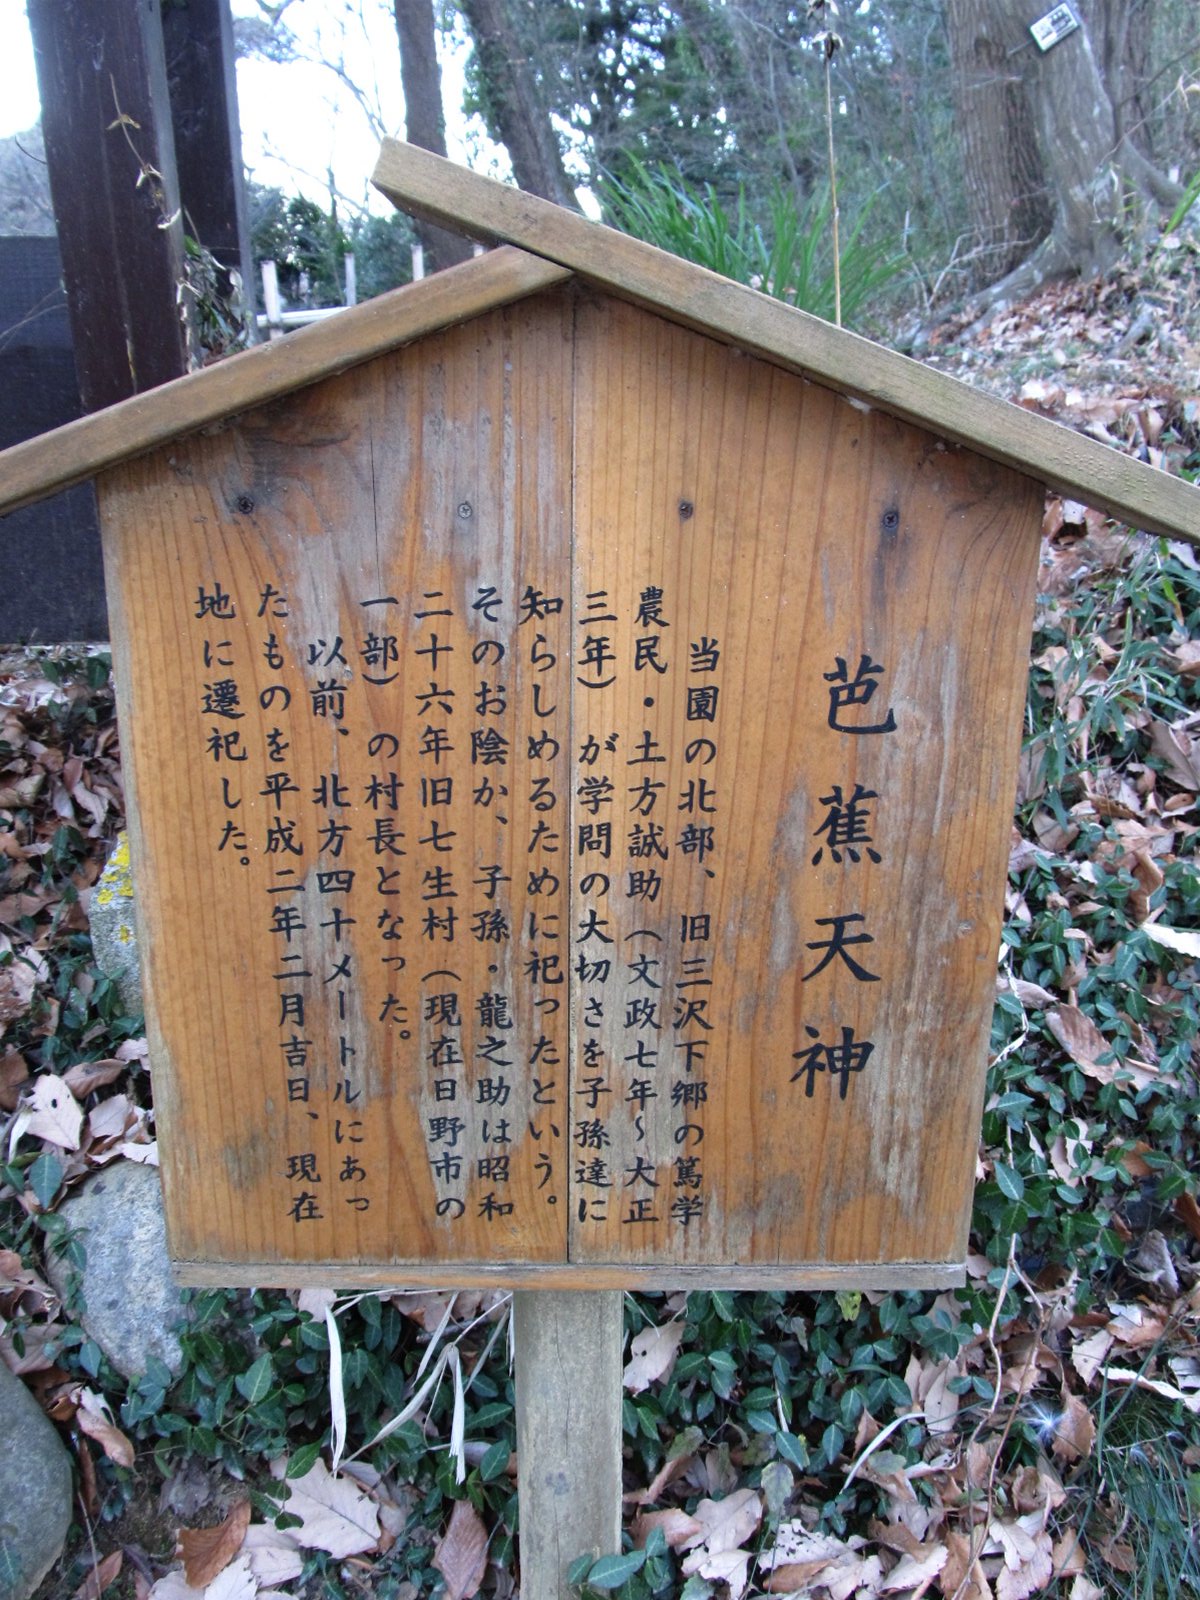 芭蕉天神
当園の北部、旧三沢下郷の篤学
農民・土方誠助（文政七年～大正
三年）が学問の大切さを子孫達に
知らしめるために祀ったという。
そのお陰か、子孫・龍之助は昭和
二十六年旧七生村（現在日野市の
一部）の村長となった。
以前、北方四十メートルにあっ
たものを平成二年二月吉日、現在
地に遷祀した。